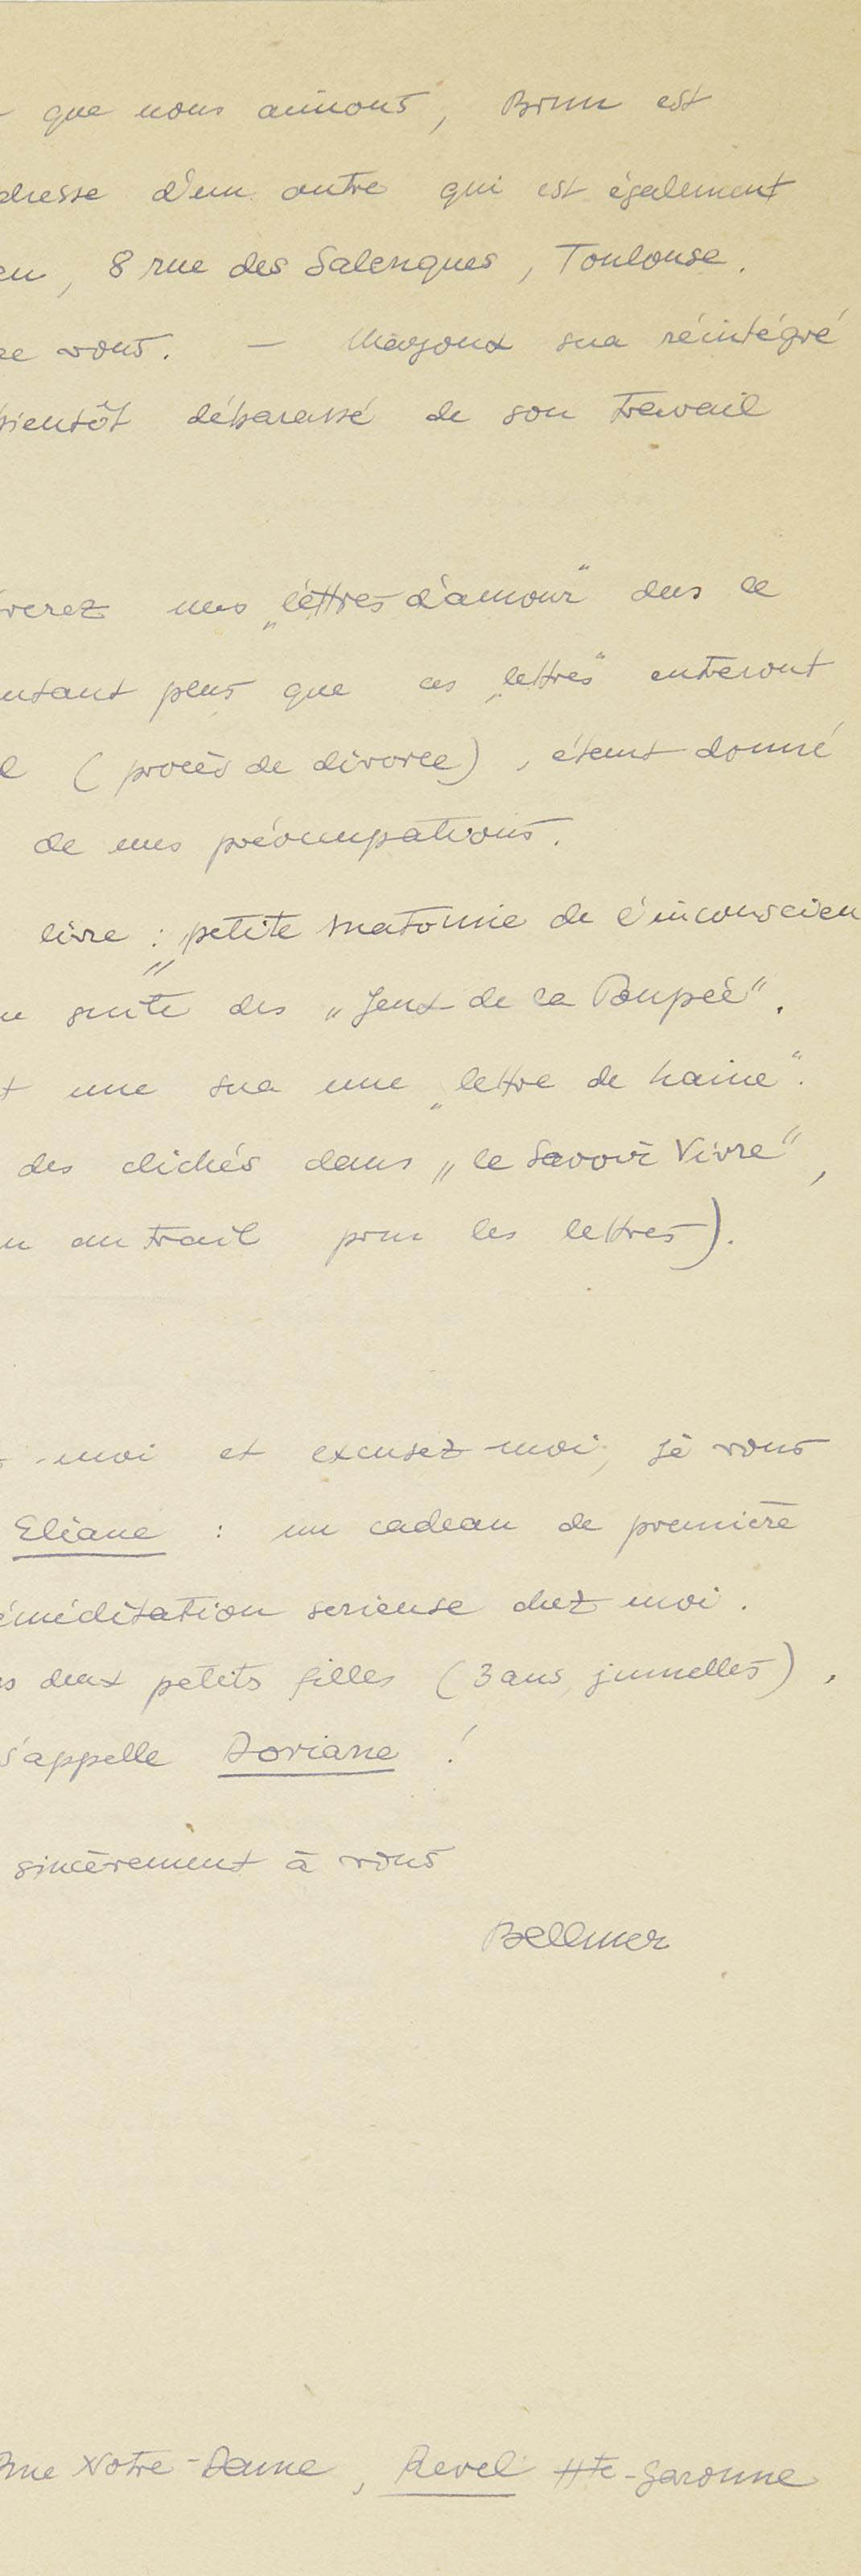 que nous aimons, Brun est
dresse d'un autre qui est également
en, 8 rue des Salenques, Toulouse.
re vous. — Mayoux sera réintégré
bientôt débarassé de son travail
verez mes „lettres d'amour" dans ce
utant plus que ces „lettres" entreront
l (procès de divorce), étant donné
de mes préoccupations.
livre : „petite anatomie de l'inconscien
suite des „Jeux de la Poupée".
t une sera une „lettre de haine".
des clichés dans „le Savoir Vivre",
au trait pour les lettres).
-moi et excusez-moi, je vous
Eliane : un cadeau de première
éméditation serieuse chez moi.
s deux petits filles (3 ans, jumelles),
s'appelle Doriane !
sincèrement à vous
Bellmer
Rue Notre-Dame, Revel Hte-Garonne